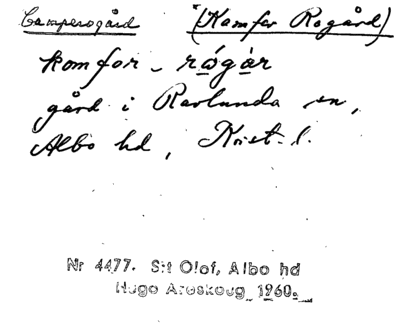 Camperogård (Kamfer Rogård)
komfor - rógàr
gård i Ravlunda sn,
Albo hd, Krist. l.
Nr 4477. S:t Olof, Albo hd
Hugo Areskoug 1960.